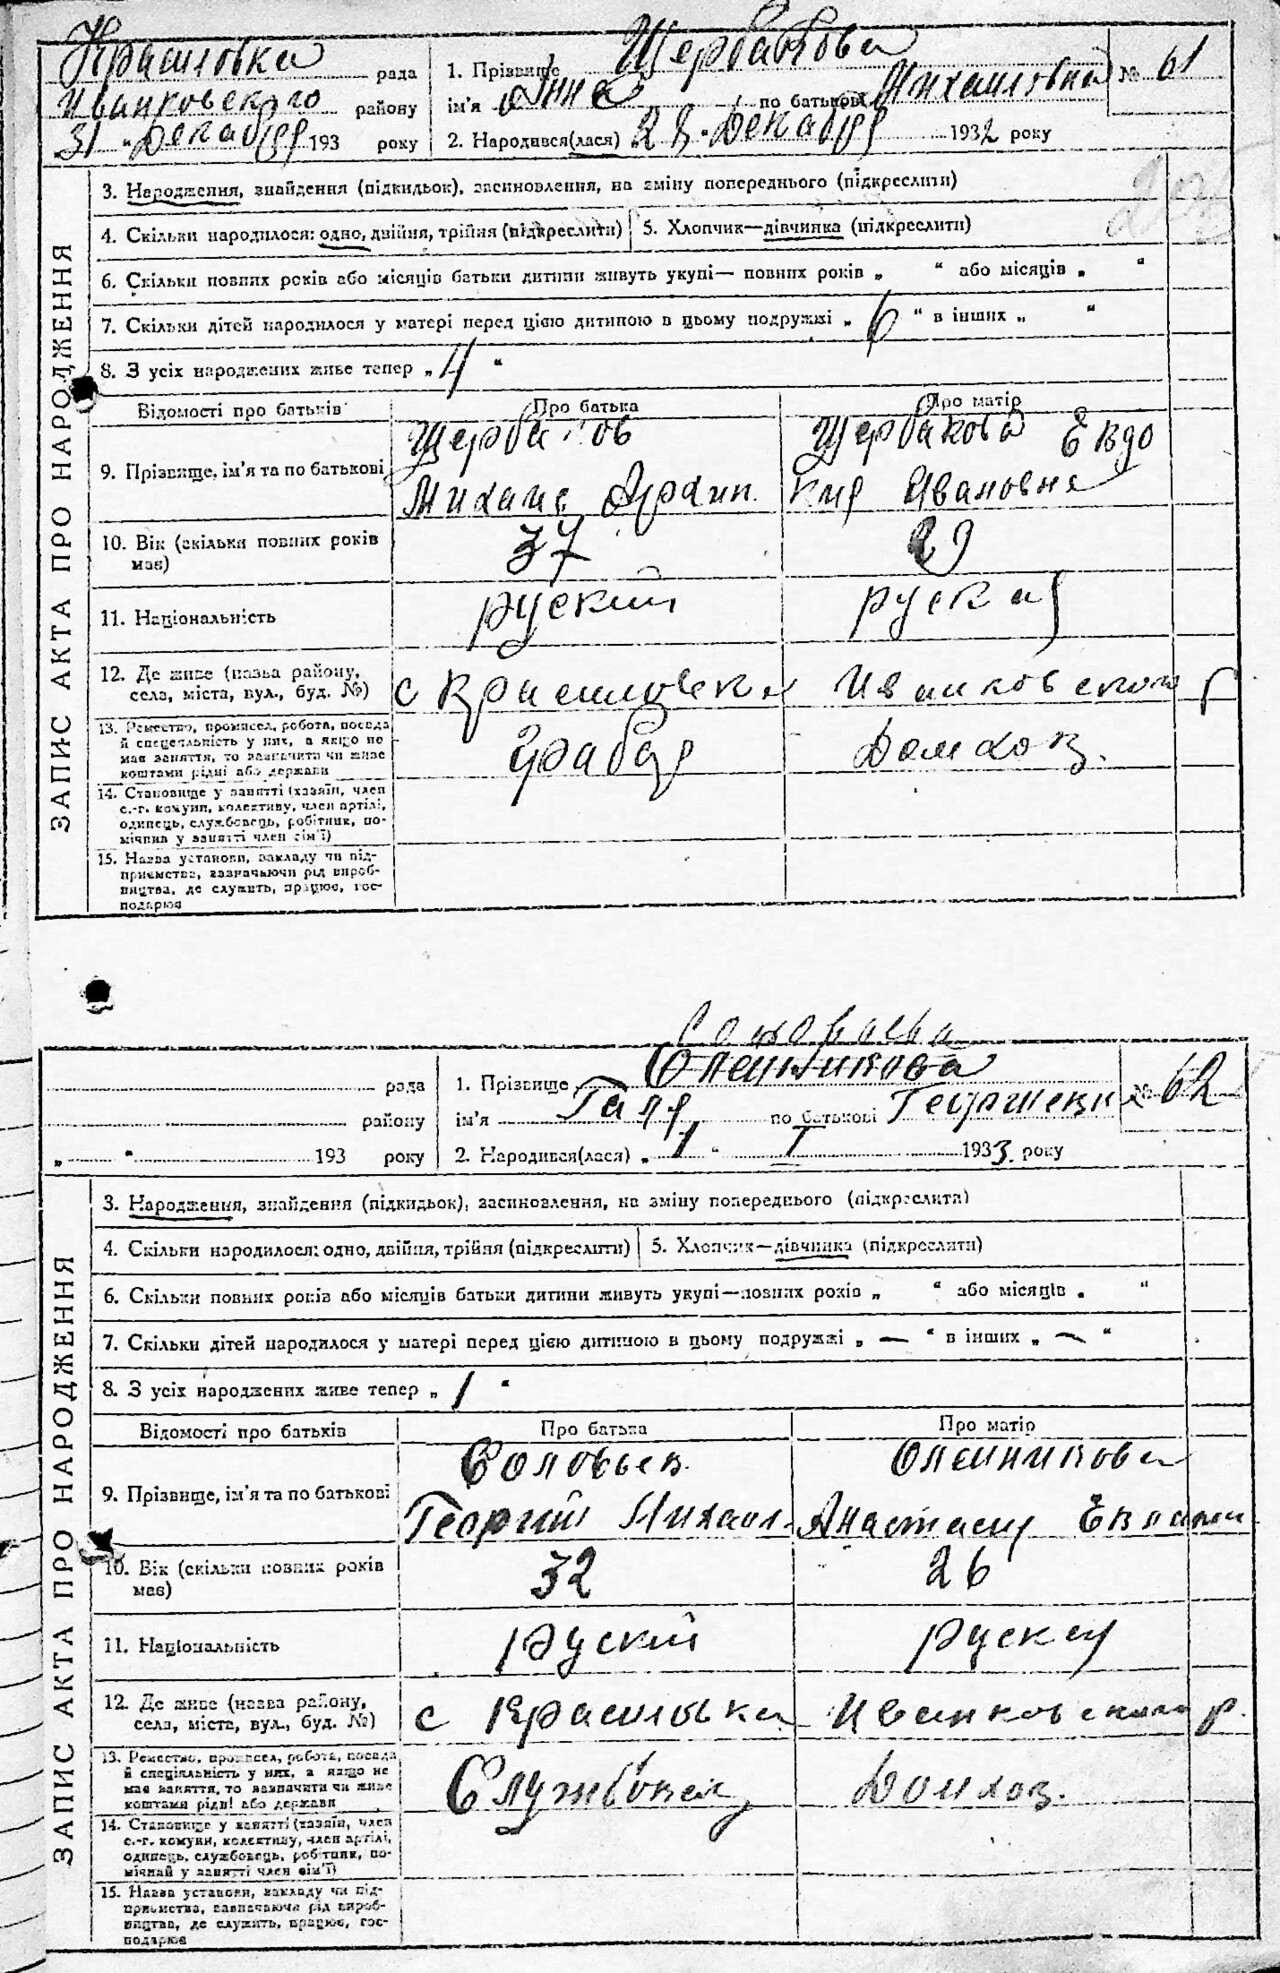 Красиловка рада
Иванковского району
31 " Декабря 193 року
1. Прізвище Щербакова
ім'я Анна по батькові Михайловна
2. Народився(лася) „28" Декабря 1932 року
№ 61
ЗАПИС АКТА ПРО НАРОДЖЕННЯ
3. Народження, знайдення (підкидьок), засиновлення, на зміну попереднього (підкреслити)
4. Скільки народилося: одно, двійня, трійня (підкреслити) 5. Хлопчик—дівчинка (підкреслити)
6. Скільки повних років або місяців батьки дитини живуть укупі— повних років „ " або місяців „ "
7. Скільки дітей народилося у матері перед цією дитиною в цьому подружжі „ 6 " в інших „ "
8. З усіх народжених живе тепер „ 4 "
Відомості про батьків Про батька Про матір
9. Прізвище, ім'я та по батькові
Щербаков
Михаил Архип.
Щербакова Евдо
кия Ивановна
10. Вік (скільки повних років
має)
37 29
11. Національність руский руская
12. Де живе (назва району,
села, міста, вул., буд. №)
с Красиловка Иванковского р
13. Ремество, промисел, робота, посада
й спеціяльність у них, а якщо не
має заняття, то зазначити чи живе
коштами рідні або держави
Домхоз.
14. Становище у занятті (хазяїн, член
с.-г. комуни, колективу, член артілі,
одинець, службовець, робітник, по-
мічник у занятті член сім'ї)
15. Назва установи, закладу чи під-
приємства, зазначаючи рід вироб-
ництва, де служить, працює, гос-
подарює
Соловьева
Олейникова
рада
району
„ " 193 року
1. Прізвище
ім'я Галя по батькові Георгиевна
2. Народився(лася) „ 1 " I 1933. року
№ 62
ЗАПИС АКТА ПРО НАРОДЖЕННЯ
3. Народження, знайдення (підкидьок), засиновлення, на зміну попереднього (підкреслити)
4. Скільки народилося: одно, двійня, трійня (підкреслити) 5. Хлопчик—дівчинка (підкреслити)
6. Скільки повних років або місяців батьки дитини живуть укупі—повних років „ " або місяців „ "
7. Скільки дітей народилося у матері перед цією дитиною в цьому подружжі „ — " в інших „ — "
8. З усіх народжених живе тепер „ 1 "
Відомості про батьків Про батька Про матір
9. Прізвище, ім'я та по батькові
Соловьев
Георгий Михаил.
Олейникова
Анастасия
10. Вік (скільки повних років
має)
32 26
11. Національність руский руская
12. Де живе (назва району,
села, міста, вул., буд. №)
с Красиловка Иванковского р.
13. Ремество, промисел, робота, посада
й спеціяльність у них, а якщо не
має заняття, то зазначити чи живе
коштами рідні або держави
Домхоз.
14. Становище у занятті (хазяїн, член
с.-г. комуни, колективу, член артілі,
одинець, службовець, робітник, по-
мічний у занятті член сім'ї)
15. Назва установи, закладу чи під-
приємства, зазначаючи рід вироб-
ництва, де служить, працює, гос-
подарює